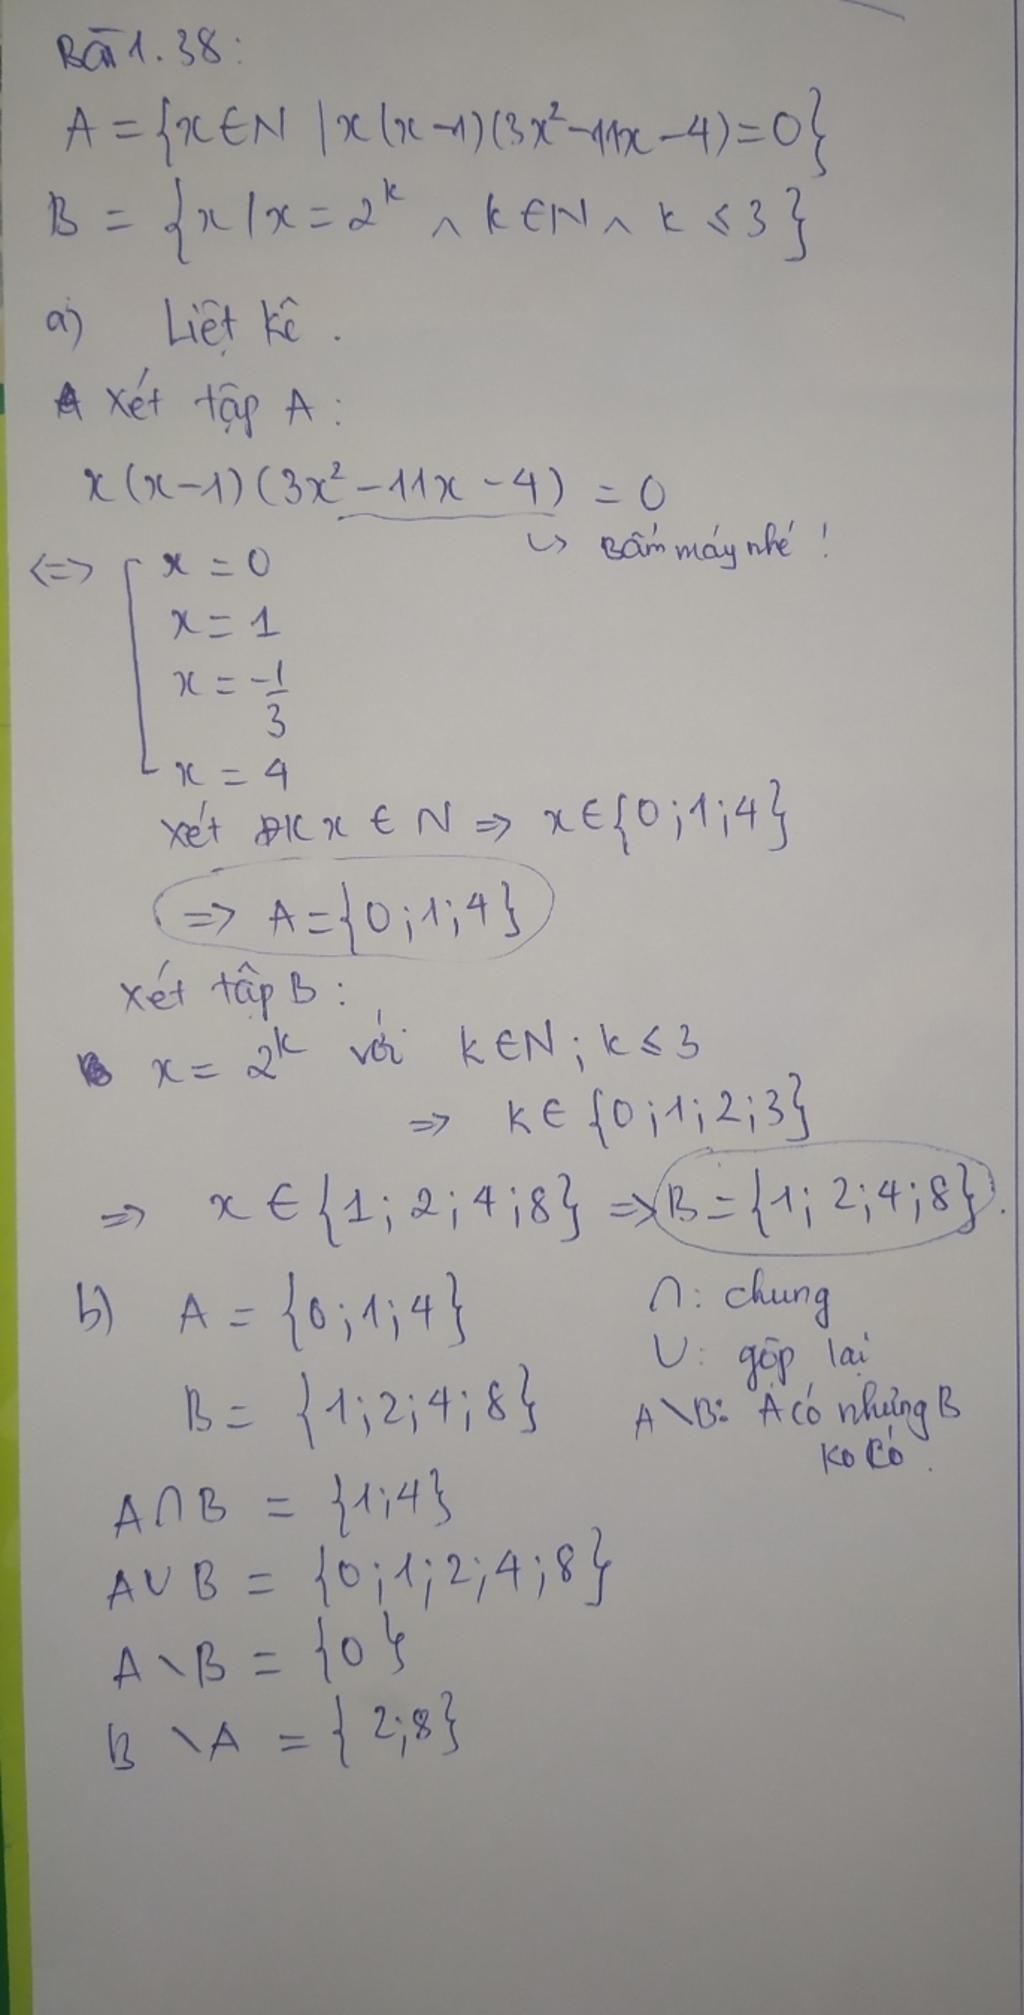 Bài 1.38:
A = {x ∈ N | x(x-1)(3x²-11x-4)=0}
B = {x | x = 2ᵏ ∧ k ∈ N ∧ k ≤ 3}
a) Liệt kê.
Xét tập A:
x(x-1)(3x²-11x-4) = 0
↪ Bấm máy nhé!
<=> [ x = 0
x = 1
x = -1/3
x = 4
Xét ĐK x ∈ N => x ∈ {0;1;4}
=> A = {0;1;4}
Xét tập B:
x = 2ᵏ với k ∈ N; k ≤ 3
=> k ∈ {0;1;2;3}
=> x ∈ {1;2;4;8} => B = {1;2;4;8}.
b) A = {0;1;4}
B = {1;2;4;8}
∩: chung
∪: gộp lại
A\B: A có nhưng B
ko có.
A∩B = {1;4}
A∪B = {0;1;2;4;8}
A\B = {0}
B\A = {2;8}